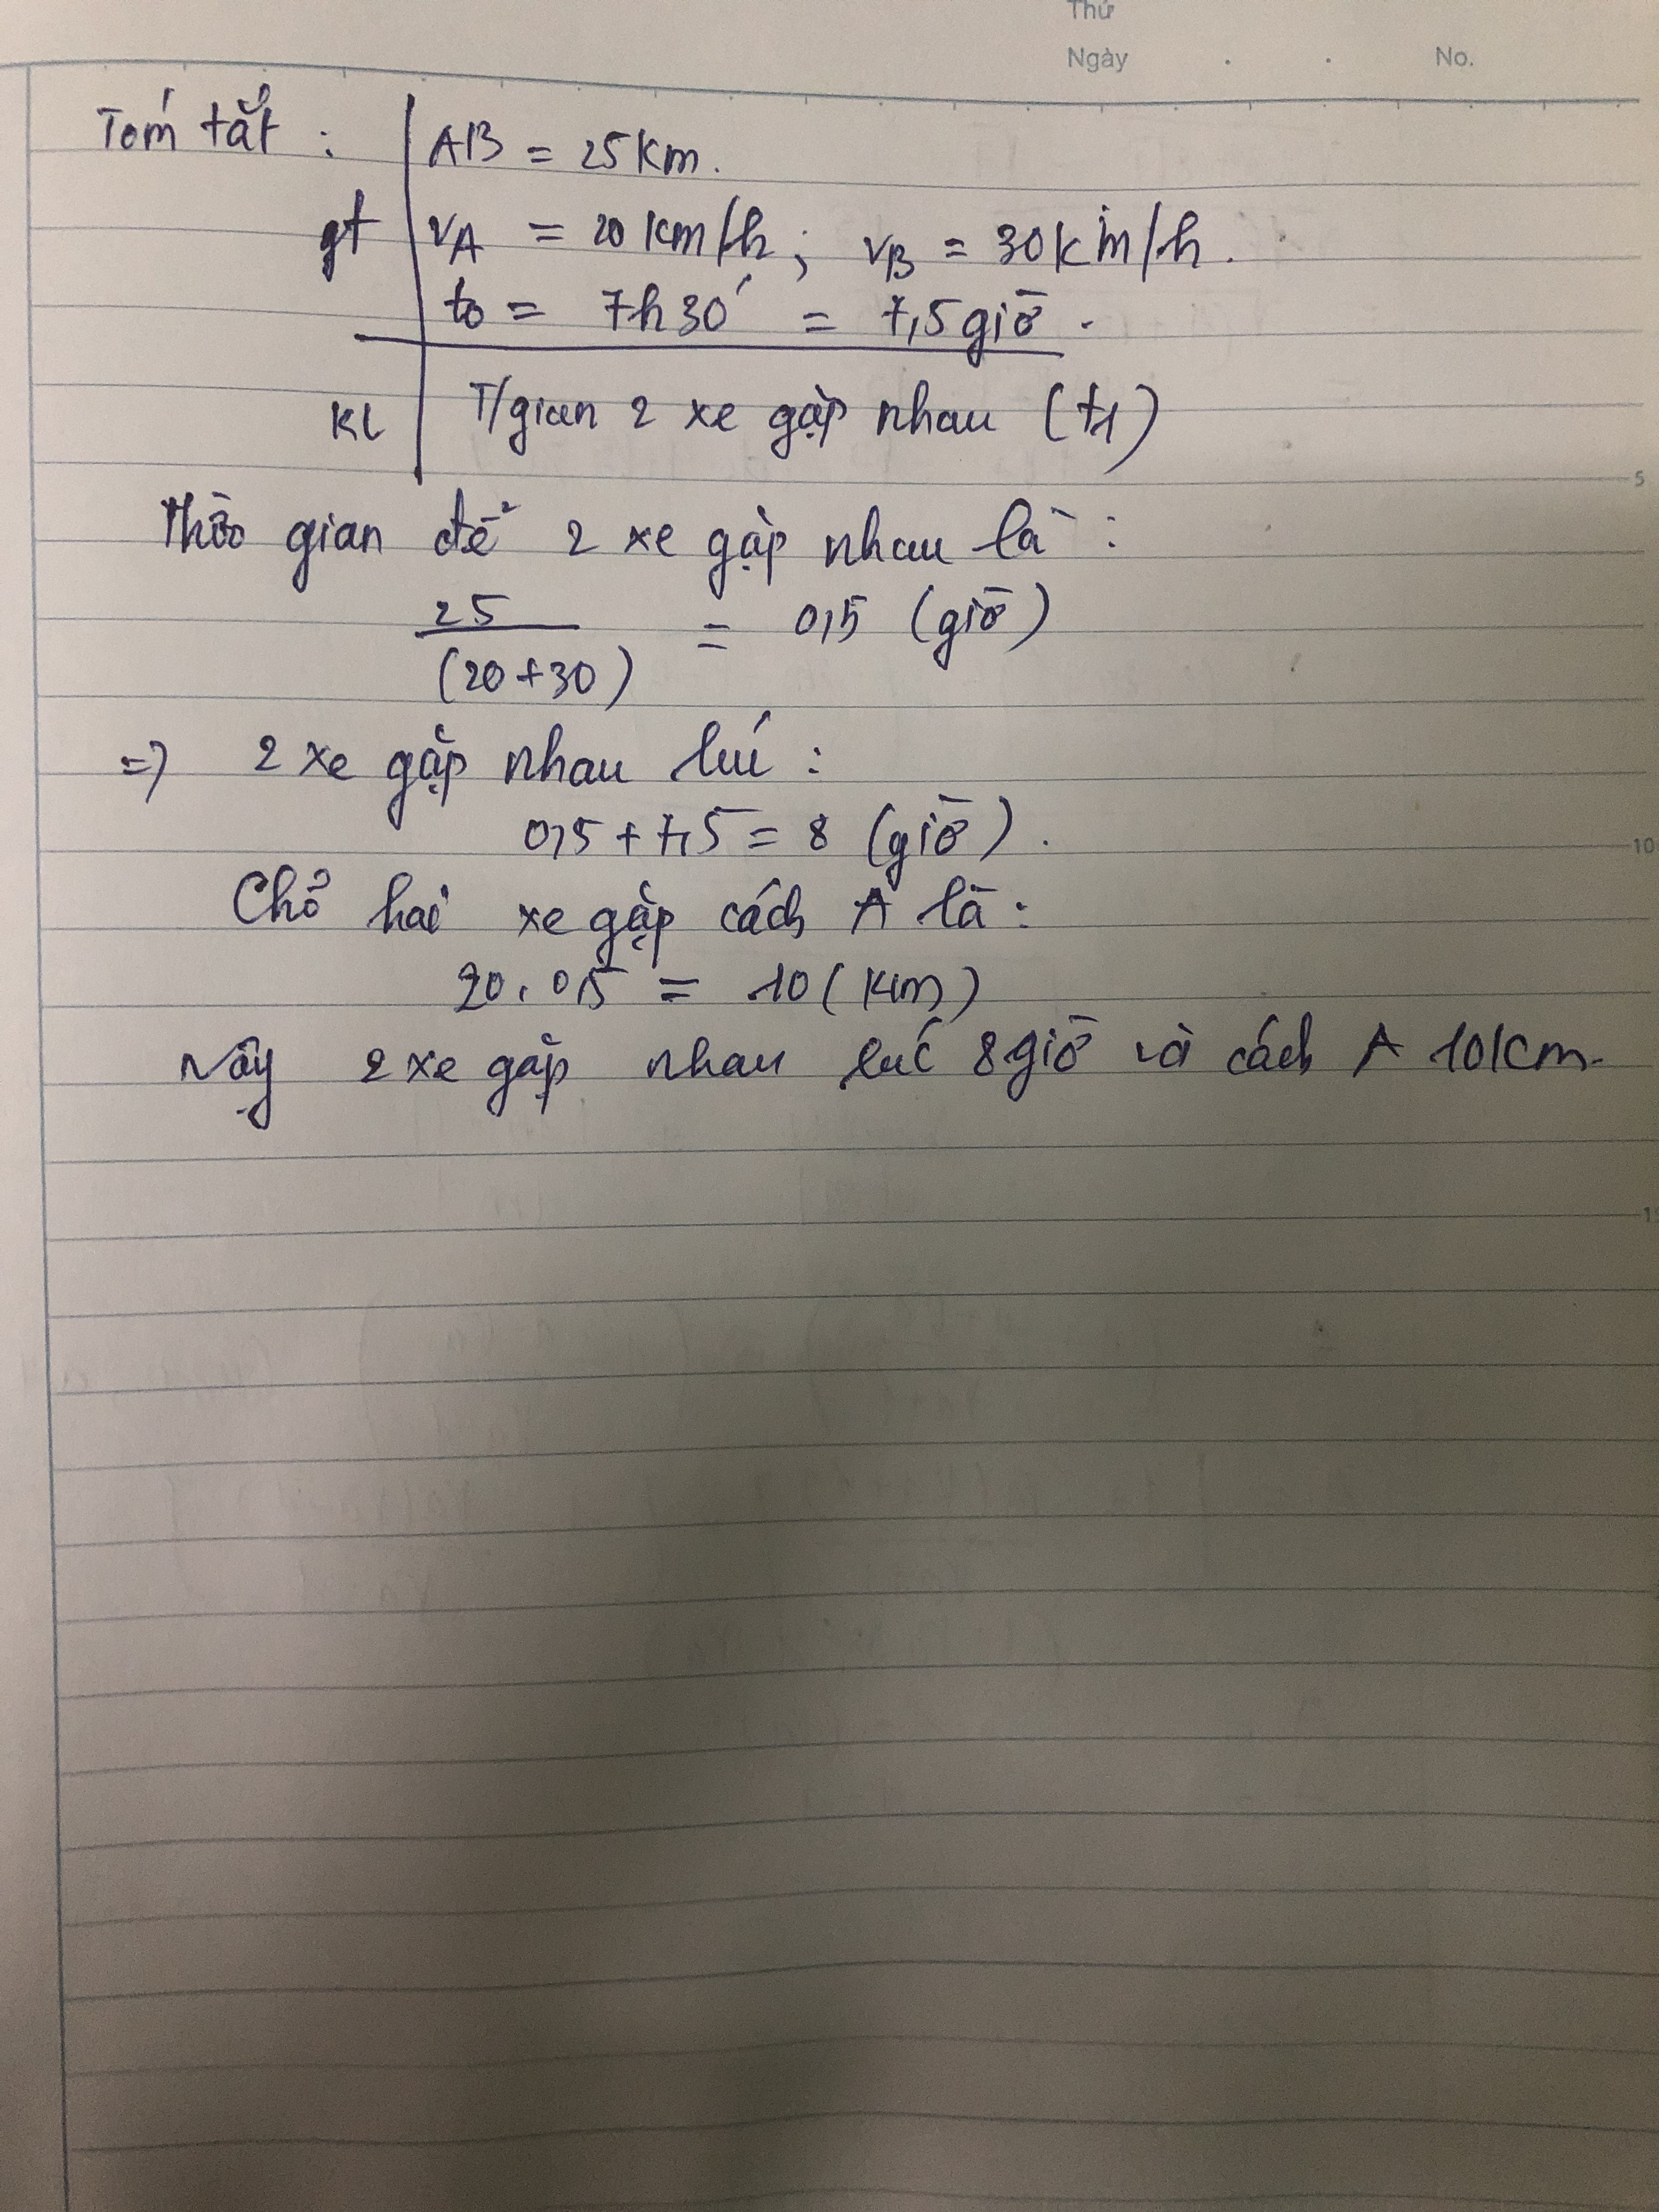 Thứ
Ngày . . No.
Tóm tắt : AB = 25 Km.
gt vA = 20 Km/h ; vB = 30 Km/h .
t0 = 7h30' = 7,5 giờ .
KL T/gian 2 xe gặp nhau (t1)
5
Thời gian để 2 xe gặp nhau là :
25
= 0,5 (giờ)
(20+30)
=> 2 xe gặp nhau lúc :
0,5 + 7,5 = 8 (giờ) .
10
Chổ hai xe gặp cách A là :
20 . 0,5 = 10 (Km)
Vậy 2 xe gặp nhau lúc 8 giờ và cách A 10 Km.